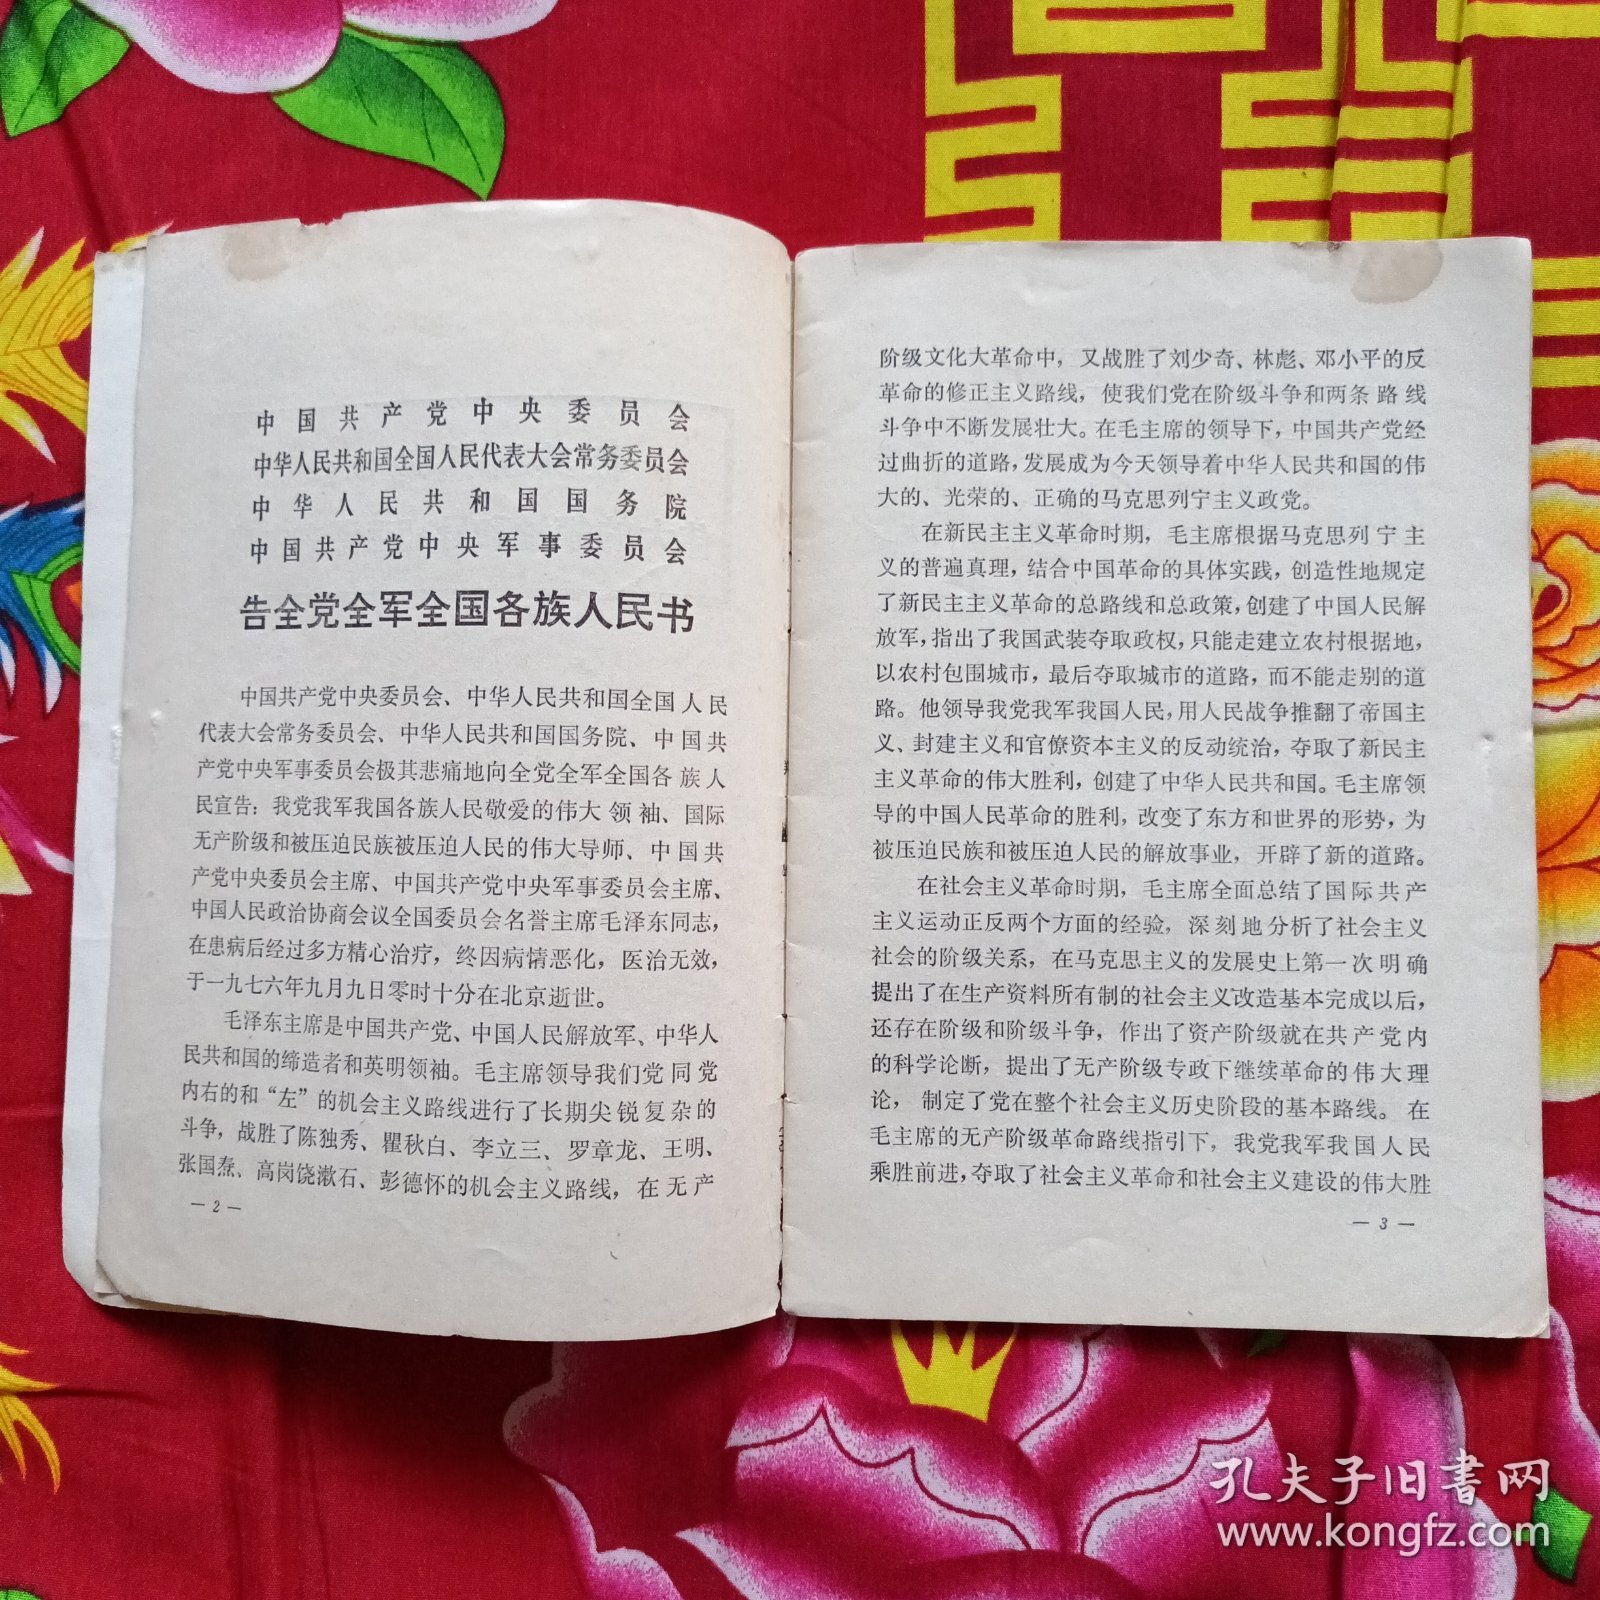 中国共产党中央委员会
中华人民共和国全国人民代表大会常务委员会
中华人民共和国国务院
中国共产党中央军事委员会
告全党全军全国各族人民书
中国共产党中央委员会、中华人民共和国全国人民
代表大会常务委员会、中华人民共和国国务院、中国共
产党中央军事委员会极其悲痛地向全党全军全国各族人
民宣告：我党我军我国各族人民敬爱的伟大领袖、国际
无产阶级和被压迫民族被压迫人民的伟大导师、中国共
产党中央委员会主席、中国共产党中央军事委员会主席、
中国人民政治协商会议全国委员会名誉主席毛泽东同志，
在患病后经过多方精心治疗，终因病情恶化，医治无效，
于一九七六年九月九日零时十分在北京逝世。
毛泽东主席是中国共产党、中国人民解放军、中华人
民共和国的缔造者和英明领袖。毛主席领导我们党同党
内右的和“左”的机会主义路线进行了长期尖锐复杂的
斗争，战胜了陈独秀、瞿秋白、李立三、罗章龙、王明、
张国焘、高岗饶漱石、彭德怀的机会主义路线，在无产
— 2 —
阶级文化大革命中，又战胜了刘少奇、林彪、邓小平的反
革命的修正主义路线，使我们党在阶级斗争和两条路线
斗争中不断发展壮大。在毛主席的领导下，中国共产党经
过曲折的道路，发展成为今天领导着中华人民共和国的伟
大的、光荣的、正确的马克思列宁主义政党。
在新民主主义革命时期，毛主席根据马克思列宁主
义的普遍真理，结合中国革命的具体实践，创造性地规定
了新民主主义革命的总路线和总政策，创建了中国人民解
放军，指出了我国武装夺取政权，只能走建立农村根据地，
以农村包围城市，最后夺取城市的道路，而不能走别的道
路。他领导我党我军我国人民，用人民战争推翻了帝国主
义、封建主义和官僚资本主义的反动统治，夺取了新民主
主义革命的伟大胜利，创建了中华人民共和国。毛主席领
导的中国人民革命的胜利，改变了东方和世界的形势，为
被压迫民族和被压迫人民的解放事业，开辟了新的道路。
在社会主义革命时期，毛主席全面总结了国际共产
主义运动正反两个方面的经验，深刻地分析了社会主义
社会的阶级关系，在马克思主义的发展史上第一次明确
提出了在生产资料所有制的社会主义改造基本完成以后，
还存在阶级和阶级斗争，作出了资产阶级就在共产党内
的科学论断，提出了无产阶级专政下继续革命的伟大理
论，制定了党在整个社会主义历史阶段的基本路线。在
毛主席的无产阶级革命路线指引下，我党我军我国人民
乘胜前进，夺取了社会主义革命和社会主义建设的伟大胜
— 3 —
孔夫子旧書网
www.kongfz.com